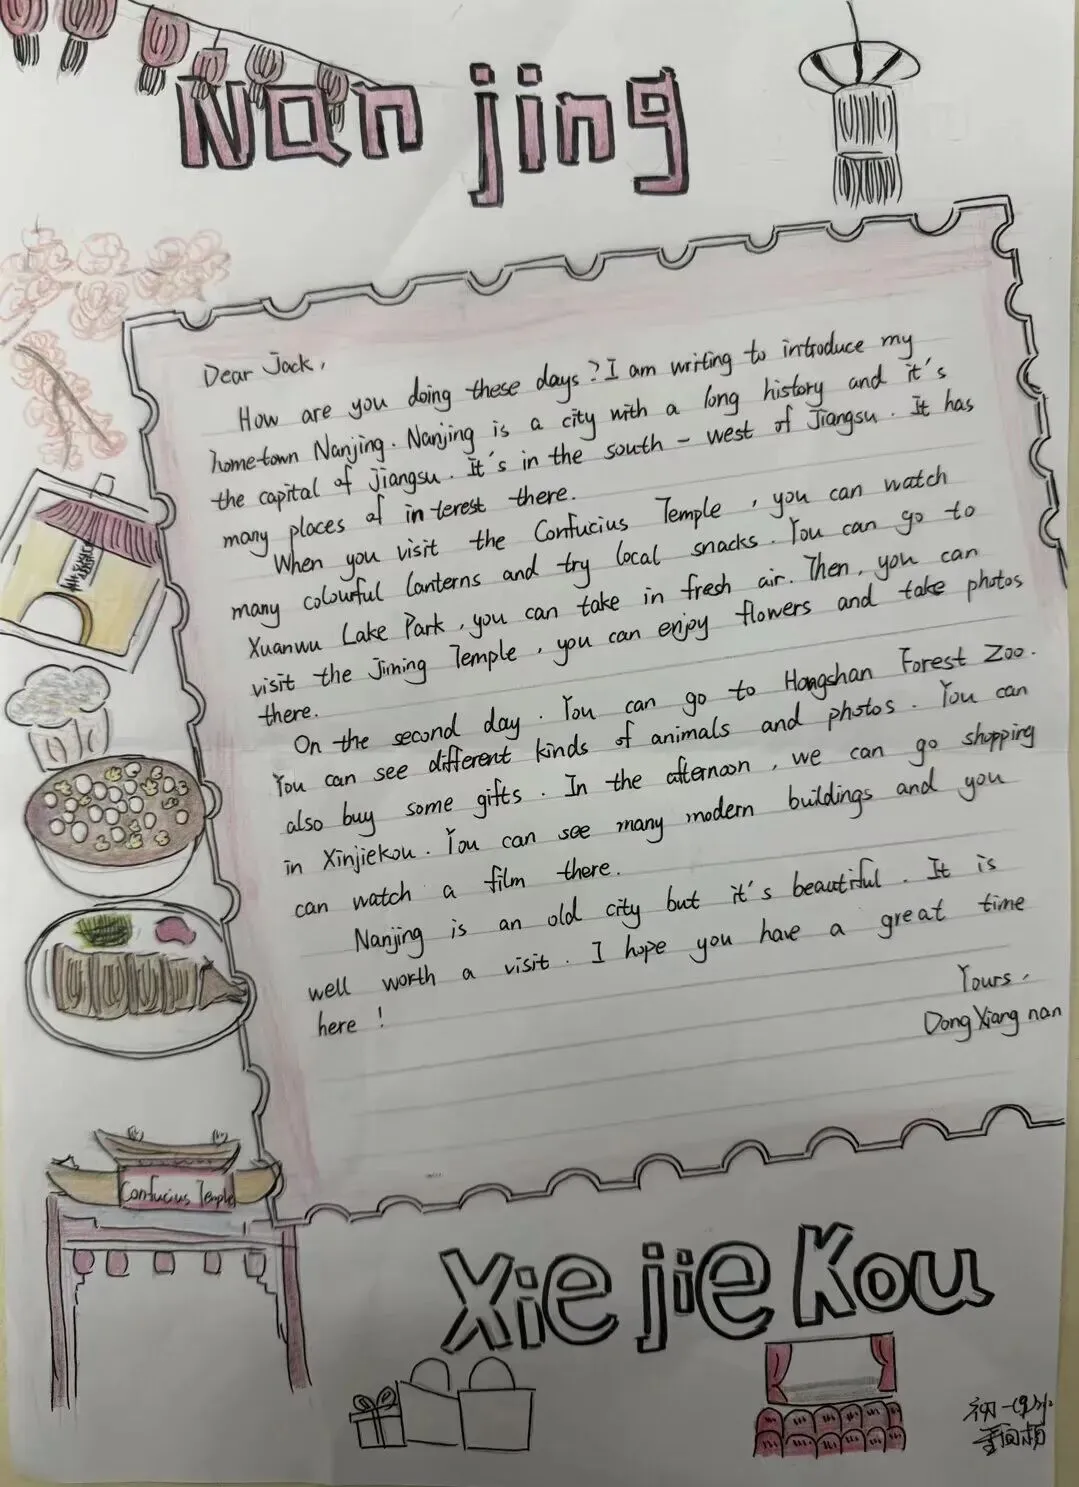 Nan jing
Dear Jack,
How are you doing these days? I am writing to introduce my
hometown Nanjing. Nanjing is a city with a long history and it's
the capital of Jiangsu. It's in the south-west of Jiangsu. It has
many places of interest there.
When you visit the Confucius Temple, you can watch
many colourful lanterns and try local snacks. You can go to
Xuanwu Lake Park, you can take in fresh air. Then, you can
visit the Jiming Temple, you can enjoy flowers and take photos
there.
On the second day. You can go to Hongshan Forest Zoo.
You can see different kinds of animals and photos. You can
also buy some gifts. In the afternoon, we can go shopping
in Xinjiekou. You can see many modern buildings and you
can watch a film there.
Nanjing is an old city but it's beautiful. It is
well worth a visit. I hope you have a great time
here!
Yours,
Dong Xiang nan
Confucius Temple
Xie jie Kou
初一(9)